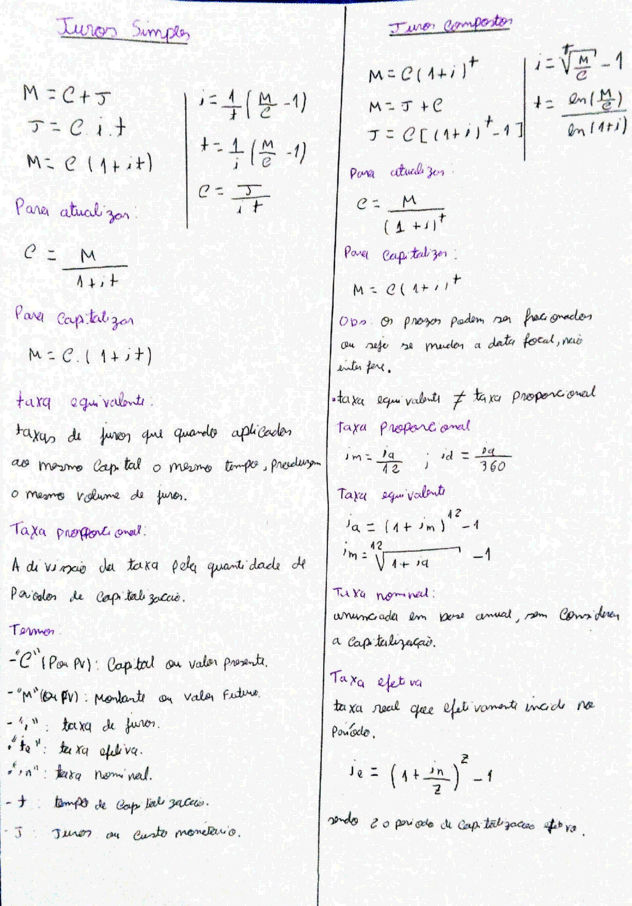 Juros Simples
M = C + J
J = C i.t
M = C (1 + it)
i = 1/t (M/C - 1)
t = 1/i (M/C - 1)
C = J/it
Para atualizar:
C = M/1+it
Para Capitalizar
M = C.(1 + it)
taxa equivalente:
taxas de juros que quando aplicadas
ao mesmo Capital o mesmo tempo, produzem
o mesmo volume de juros.
Taxa proporcional:
A divisão da taxa pela quantidade de
Períodos de Capitalização.
Termos.
- "C" (P ou PV): Capital ou valor presente.
- "M" (ou FV): Montante ou Valor Futuro.
- "i": taxa de juros.
taxa efetiva.
"in": taxa nominal.
- t : tempo de Capitalização.
- J : Juros ou Custo monetário.
Juros Compostos
M = C (1+i)^t
M = J + C
J = C [(1+i)^t - 1]
i = t√M/C - 1
t = ln(M/C)/ln(1+i)
Para atualizar:
C = M/(1+i)^t
Para Capitalizar:
M = C(1+i)^t
Obs. Os prazos podem ser fracionados
ou seja se mudar a data focal, não
interfere.
.taxa equivalente ≠ taxa proporcional
Taxa Proporcional
im = ia/12 ; id = ia/360
Taxa equivalente
ia = (1 + im)^12 - 1
im = 12√1 + ia - 1
Taxa nominal:
anunciada em base anual, sem Considerar
a Capitalização.
Taxa efetiva
taxa real que efetivamente incide no
Período.
ie = (1 + in/z)^z - 1
sendo z o periodo de Capitalização efetiva.